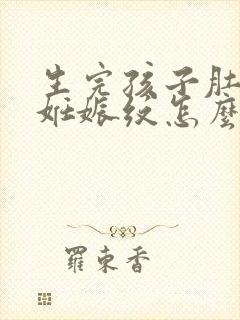 生完孩子肚
妊娠纹怎麽
羅東香